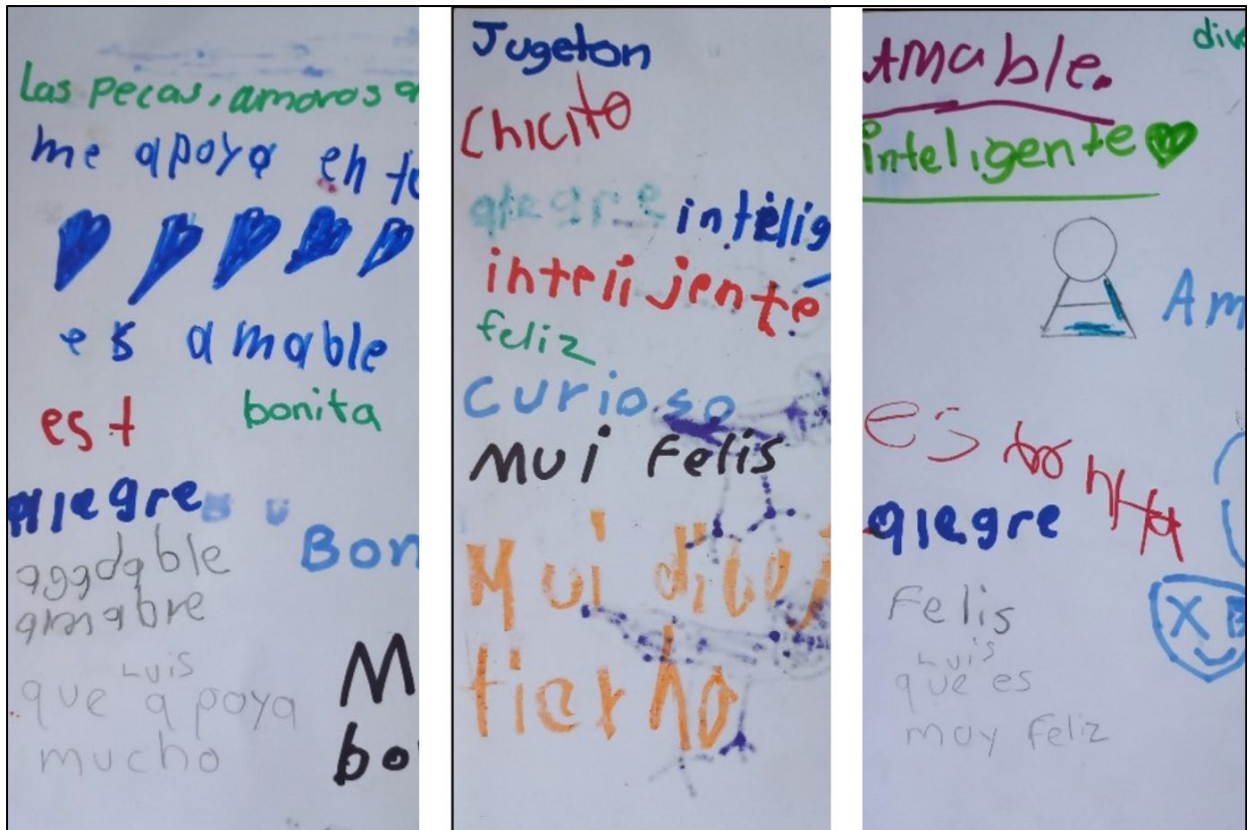 Las pecas, amoros a
me apoya en to
es amable
est
bonita
alegre
Bon
aggdable
amabre
Luis
que apoya
mucho
M
bo
Jugeton
Chicito
alegre intelig
intelijente
feliz
curioso
Mui Felis
Mui dibuj
tierno
AMable.
div
inteligente
Am
es
alegre
Felis
Luis
que es
muy feliz
X B